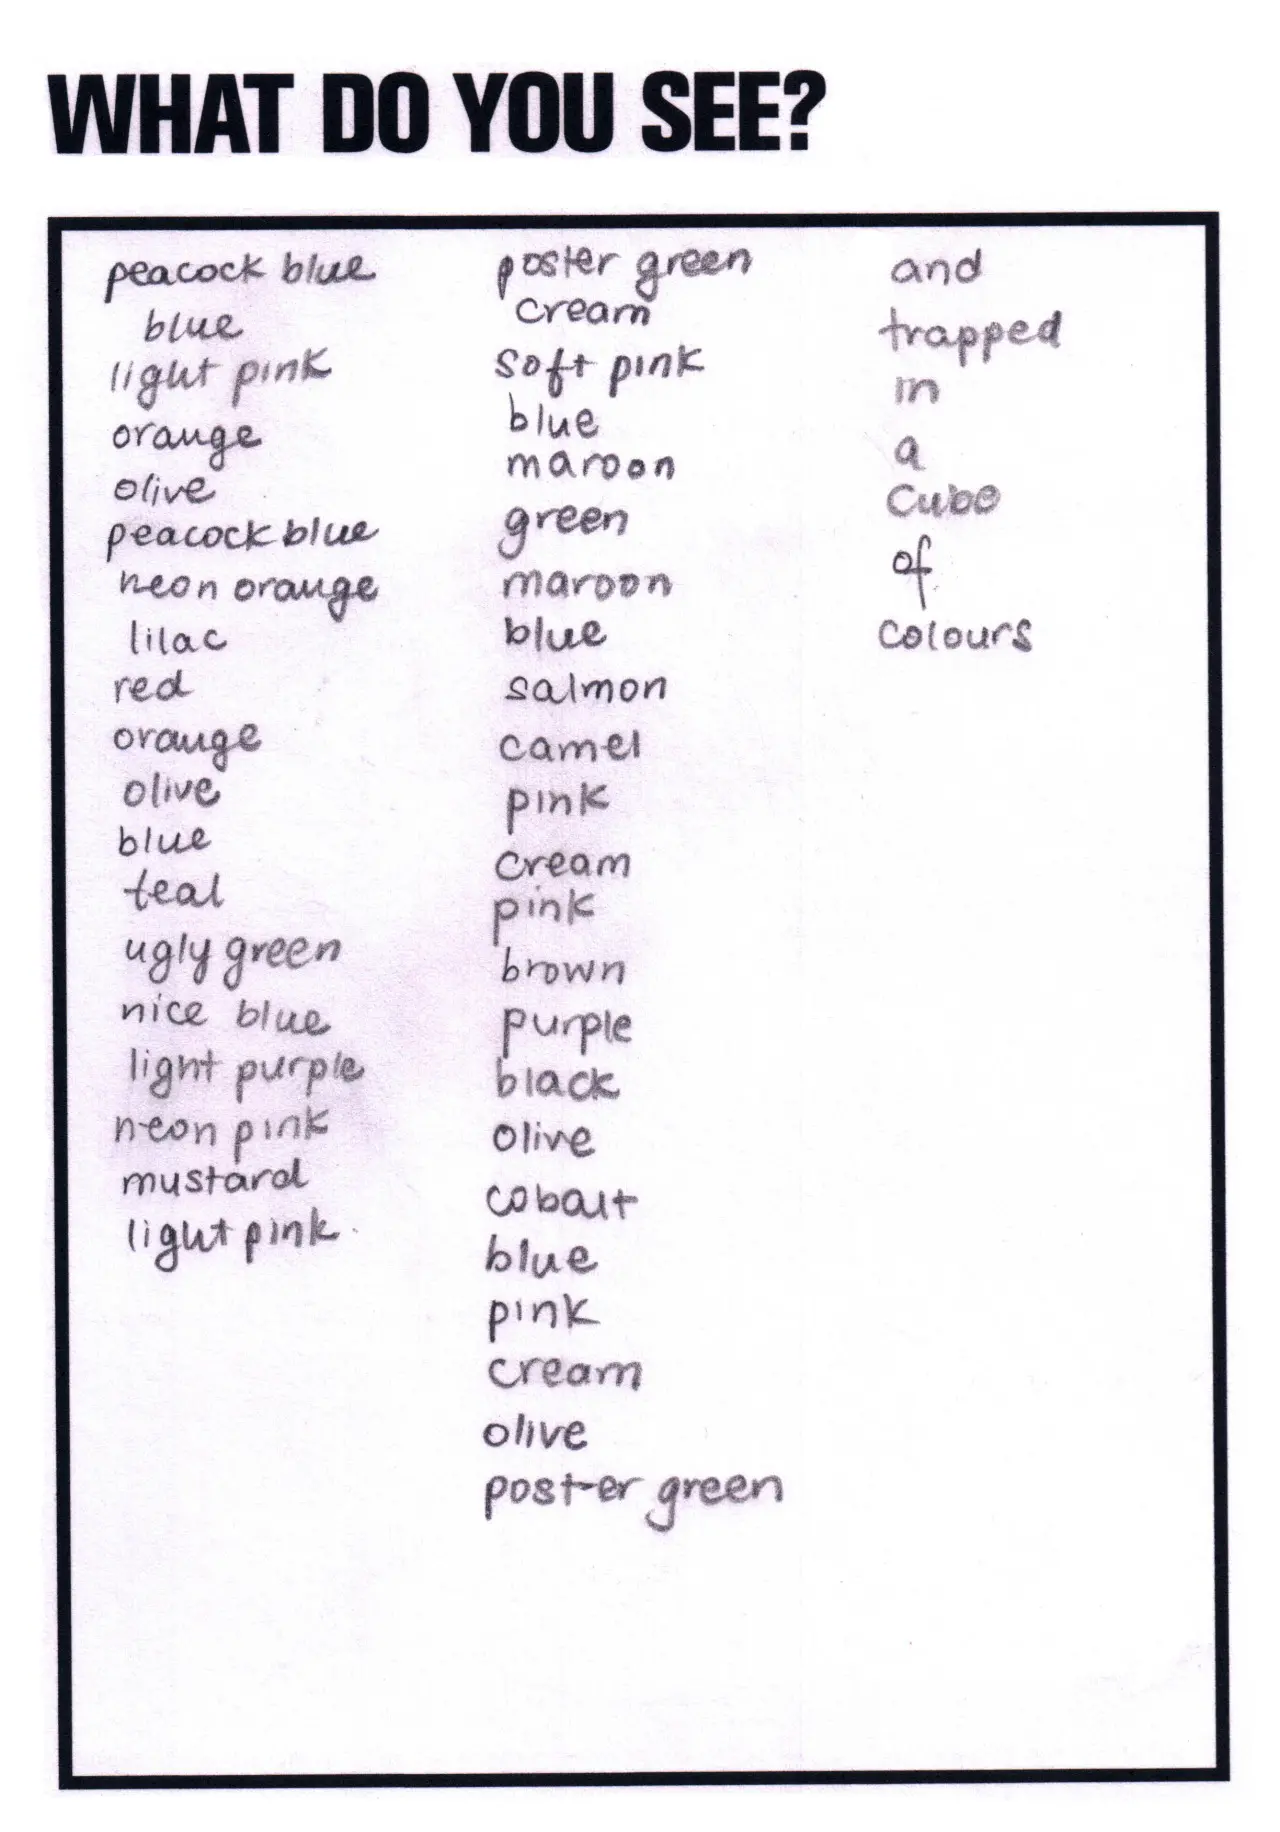 WHAT DO YOU SEE?
peacock blue
blue
light pink
orange
olive
peacock blue
neon orange
lilac
red
orange
olive
blue
teal
ugly green
nice blue
light purple
neon pink
mustard
light pink.
poster green
cream
soft pink
blue
maroon
green
maroon
blue
salmon
camel
pink
cream
pink
brown
purple
black
olive
cobalt
blue
pink
cream
olive
poster green
and
trapped
in
a
cube
of
colours